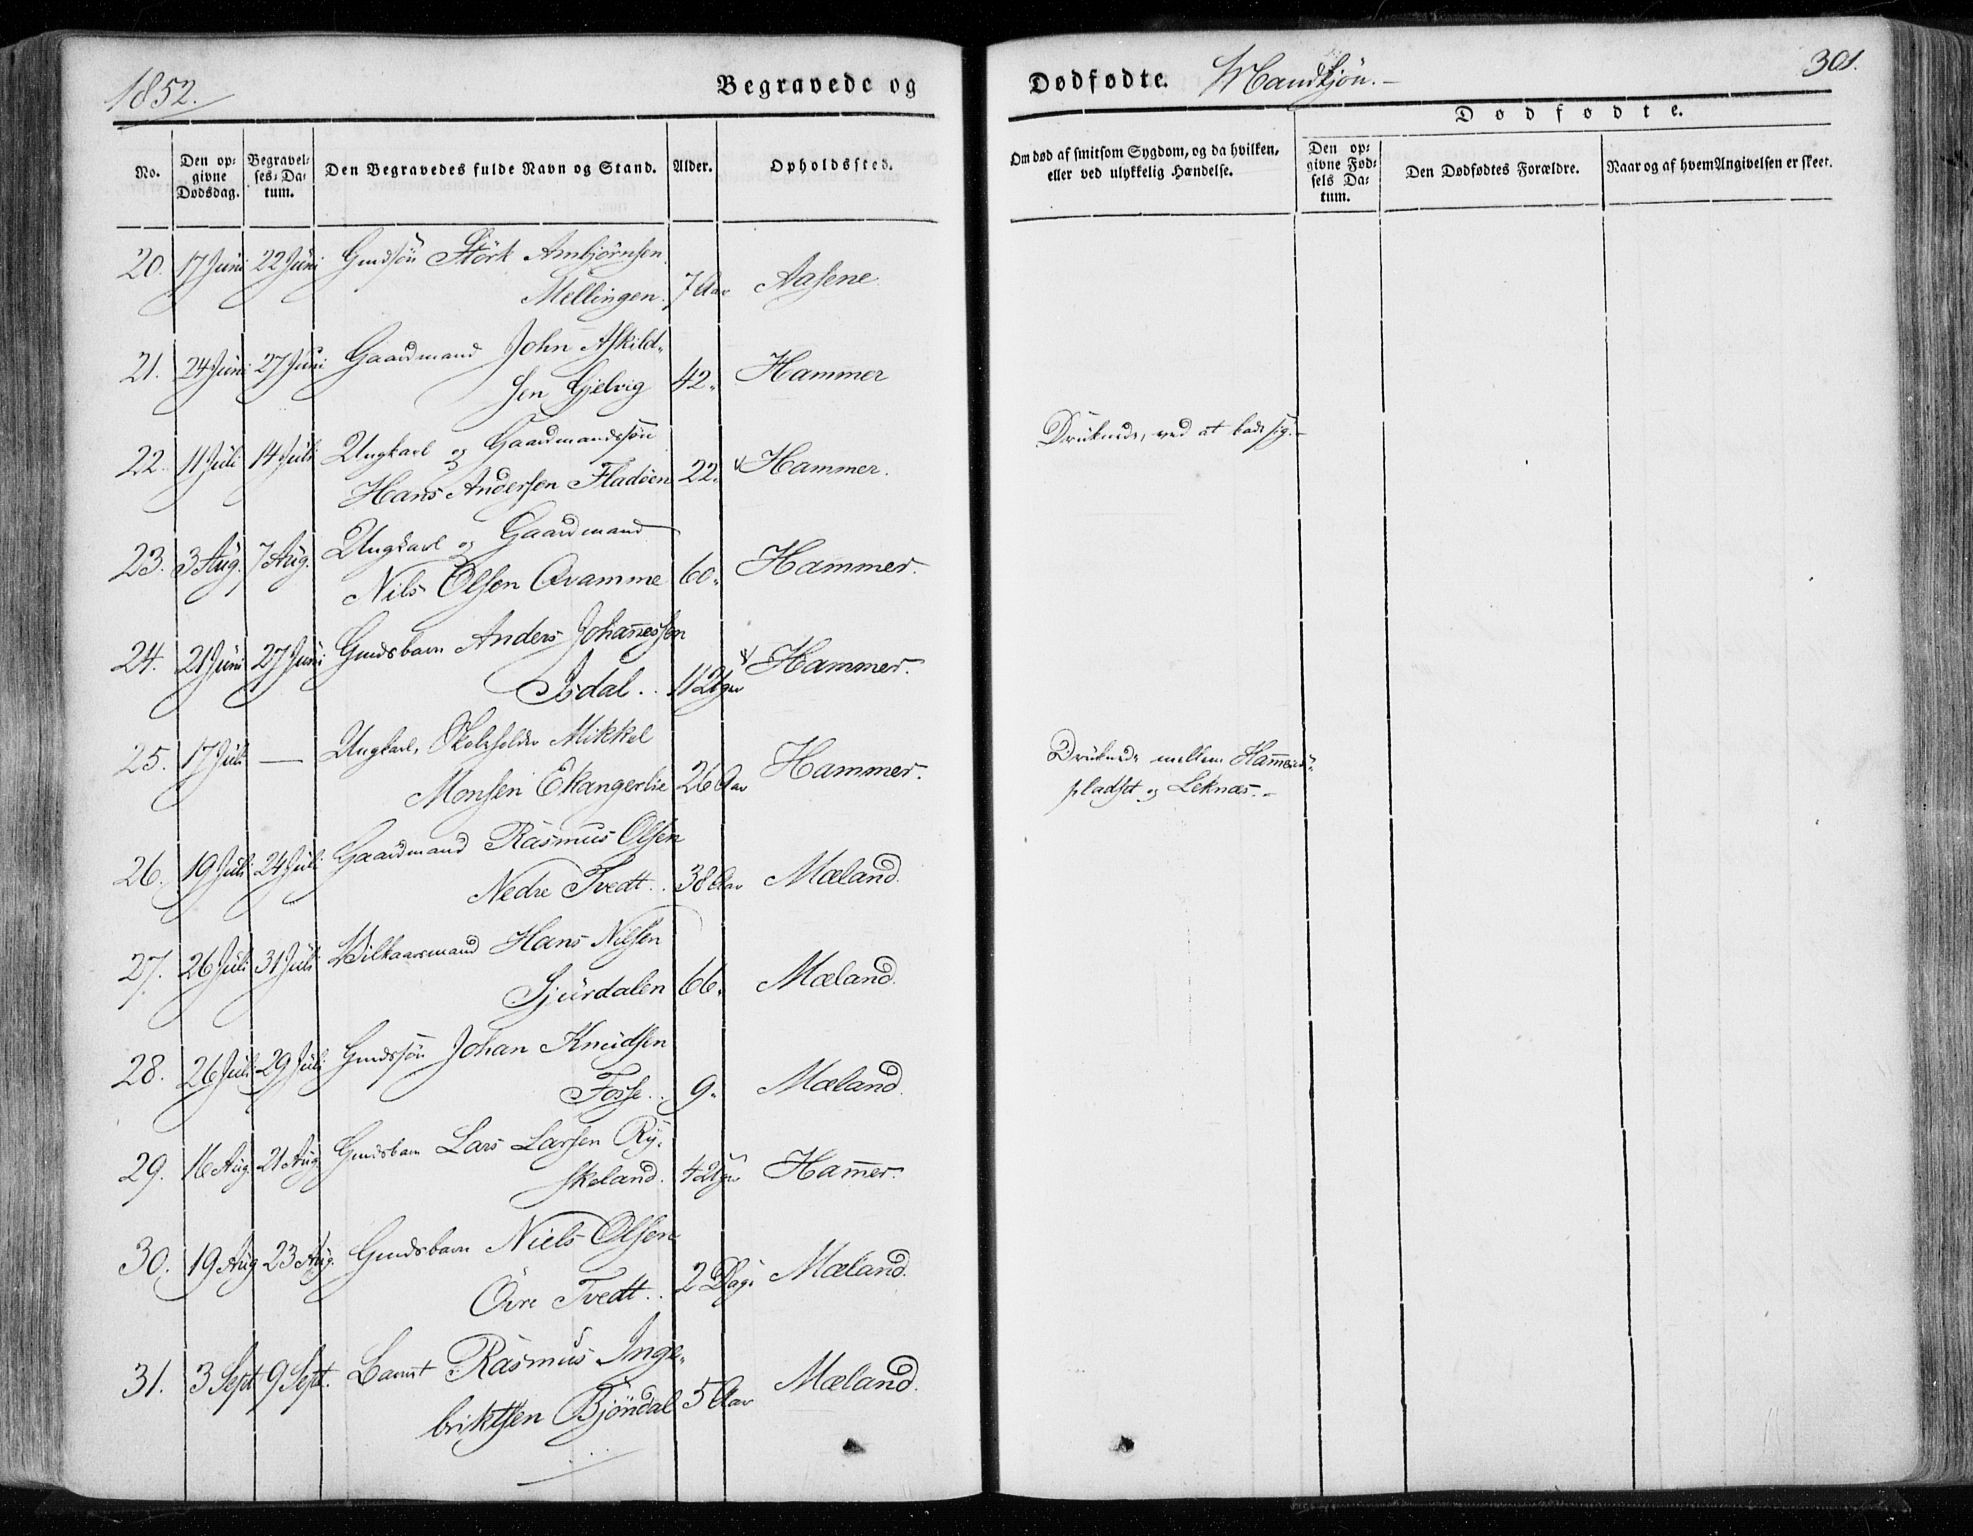 1852.
Begravede og
Dødfødte. Mandkjøn.
301.
Dødfødte.
No. Den op= givne Dødsdag. Begravel= ses= Da= tum. Den Begravedes fulde Navn og Stand. Alder. Opholdssted.
Om død af smitsom Sygdom, og da hvilken, eller ved ulykkelig Hændelse. Den op= givne Fød= sels Da= tum. Den Dødfødtes Forældre. Naar og af hvem Angivelsen er skeet.
20. 17 Juni 22 Juni Gmdssön Störk Arnbjörnsen
Mellingen. 7 Aar Aasene.
21. 24 Juni 27 Juni Gaardmand John Askild=
sen Gjelvig 42„ Hammer
22. 11 Juli 14 Juli Ungkarl og Gaardmandssön
Hans Andersen Fladöen 22„ Hammer.
Druknede, ved at bade sig.
23. 3 Aug. 7 Aug. Ungkarl og Gaardmand
Nils Olsen Qvamme 60„ Hammer.
24. 21 Juni 27 Juni Gmdsbarn Anders Johannessen
Isdal.. 11 Uger Hammer.
25. 17 Juli — Ungkarl, Skoleholder Mikkel
Monsen Ekangerlie 26 Aar Hammer.
Druknede mellem Hammers=
pladset og Leknæs.
26. 19 Juli 24 Juli Gaardmand Rasmus Olsen
Nedre Tvedt.. 38 Aar Mæland.
27. 26 Juli 31 Juli Vilkaarsmand Hans Nilsen
Sjurdalen 66„ Mæland.
28. 26 Juli 29 Juli Gmdssön Johan Knudsen
Fosse.. 9„ Mæland.
29. 16 Aug. 21 Aug. Gmdsbarn Lars Larsen Ry=
skeland. 4 Uger Hammer.
30. 19 Aug 23 Aug. Gmdsbarn Niels Olsen
Övre Tvedt.. 2 Dage Mæland.
31. 3 Sept 9 Sept. Barnet Rasmus Inge=
briktsen Bjöndal 5 Aar Mæland.